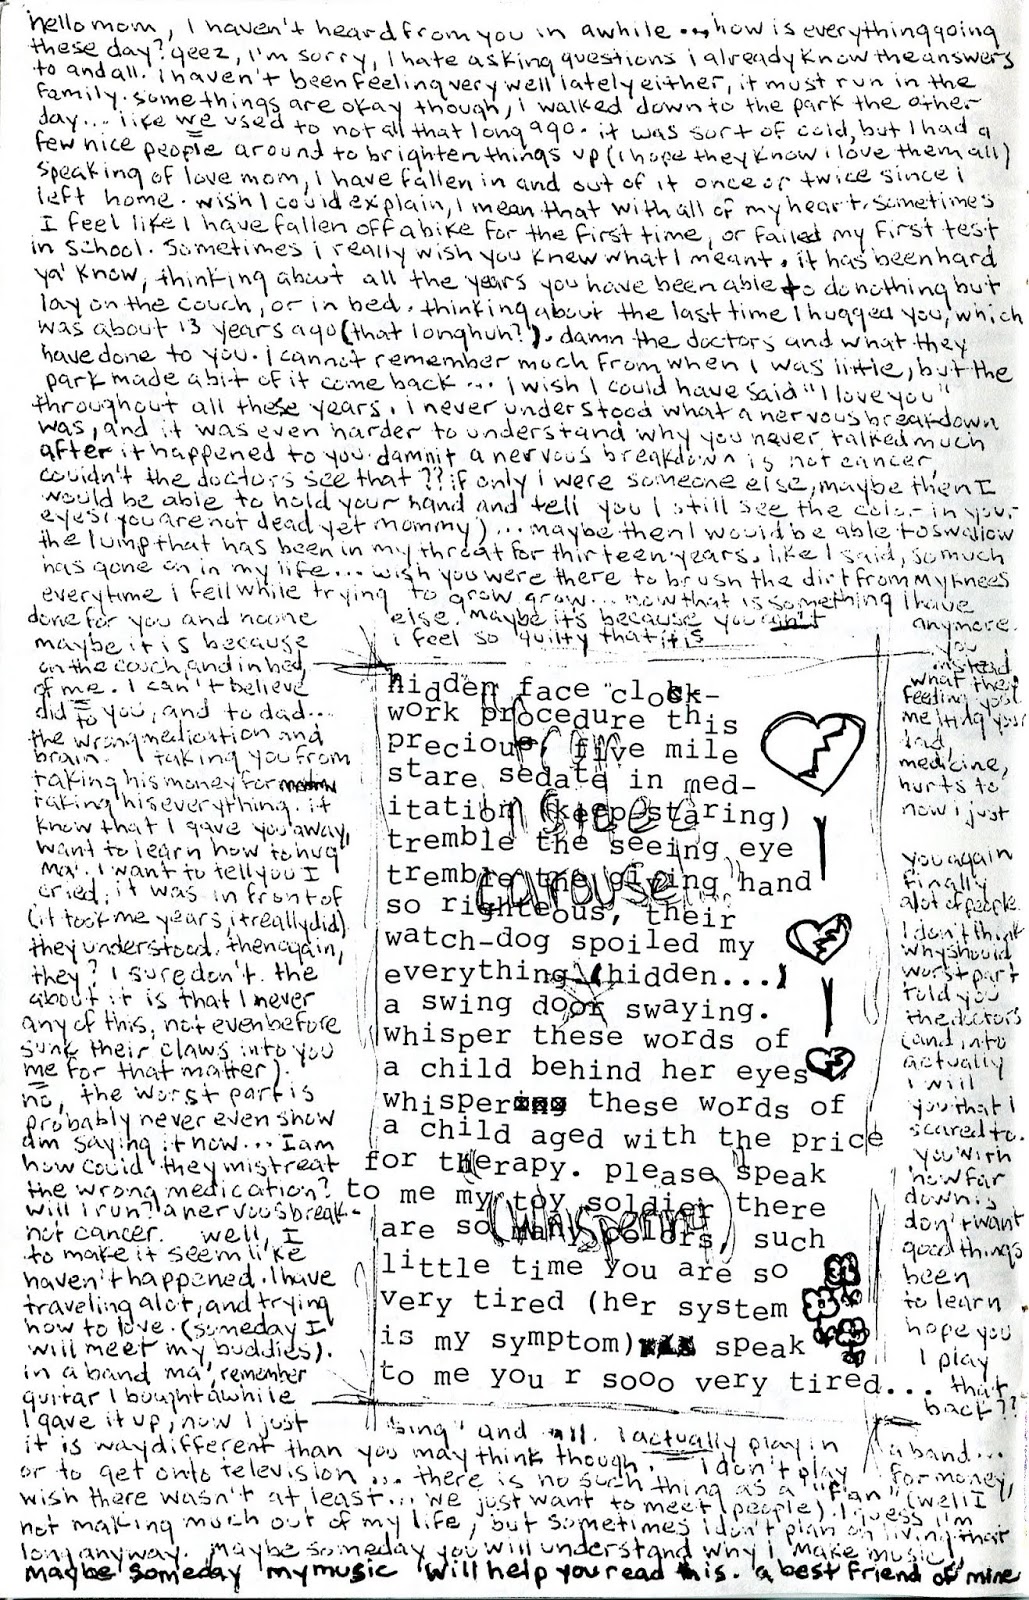 hello mom, I haven't heard from you in awhile... how is everything going
these day? geez, I'm sorry, I hate asking questions i already know the answers
to and all. i haven't been feeling very well lately either, it must run in the
family. some things are okay though, i walked down to the park the other
day... like we used to not all that long ago. it was sort of cold, but I had a
few nice people around to brighten things up (i hope they know i love them all)
speaking of love mom, i have fallen in and out of it once or twice since i
left home. wish I could explain, I mean that with all of my heart. sometimes
I feel like I have fallen off a bike for the first time, or failed my first test
in school. sometimes i really wish you knew what I meant. it has been hard
ya' know, thinking about all the years you have been able to do nothing but
lay on the couch, or in bed. thinking about the last time I hugged you, which
was about 13 years ago (that long huh?). damn the doctors and what they
have done to you. i cannot remember much from when I was little, but the
park made a bit of it come back... i wish I could have said "I love you"
throughout all these years. i never understood what a nervous breakdown
was, and it was even harder to understand why you never talked much
after it happened to you. damnit a nervous breakdown is not cancer,
couldn't the doctors see that?? if only i were someone else, maybe then I
would be able to hold your hand and tell you I still see the color in your
eyes (you are not dead yet mommy)... maybe then I would be able to swallow
the lump that has been in my throat for thirteen years. like I said, so much
has gone on in my life... wish you were there to brush the dirt from my knees
everytime i fell while trying to grow grow... now that is something I have
done for you and noone else. maybe it's because you can't anymore.
maybe it is because i feel so guilty that it is you
on the couch, and in bed, instead
of me. I can't believe what they
did to you, and to dad... feeding you
the wrong medication and melting your
brain. taking you from dad,
taking his money for medicine,
taking his everything. it hurts to
know that I gave you away, now i just
want to learn how to hug you again
ma'. I want to tell you I finally
cried; it was in front of alot of people.
(it took me years, it really did) I don't think
they understood. then again, why should
they? I sure don't. the worst part
about it is that I never told you
any of this, not even before the doctors
sunk their claws into you (and into
me for that matter). actually
no, the worst part is I will
probably never even show you that I
am saying it now... I am scared to.
how could they mistreat you with
the wrong medication? how far
will i run? a nervous break- down is
not cancer. well, I don't want
to make it seem like good things
haven't happened. I have been
traveling alot, and trying to learn
how to love. (someday I hope you
will meet my buddies). I play
in a band ma', remember that
guitar I bought awhile back??
I gave it up, now I just "sing" and all. I actually play in a band...
it is way different than you may think though. I don't play for money,
or to get onto television... there is no such thing as a "fan" (well I
wish there wasn't at least... we just want to meet people). I guess I'm
not making much out of my life, but sometimes i don't plan on living that
long anyway. maybe someday you will understand why i make music,
maybe someday my music will help you read this. a best friend of mine
hidden face clock-
work procedure this
precious, five mile
stare sedate in med-
itation (keep staring)
tremble the seeing eye
tremble the giving hand
so righteous, their
watch-dog spoiled my
everything (hidden...)
a swing door swaying.
whisper these words of
a child behind her eyes
whispering these words of
a child aged with the price
for therapy. please speak
to me my toy soldier there
are so many colors, such
little time you are so
very tired (her system
is my symptom) speak
to me you r sooo very tired...
carousel
(whispering)